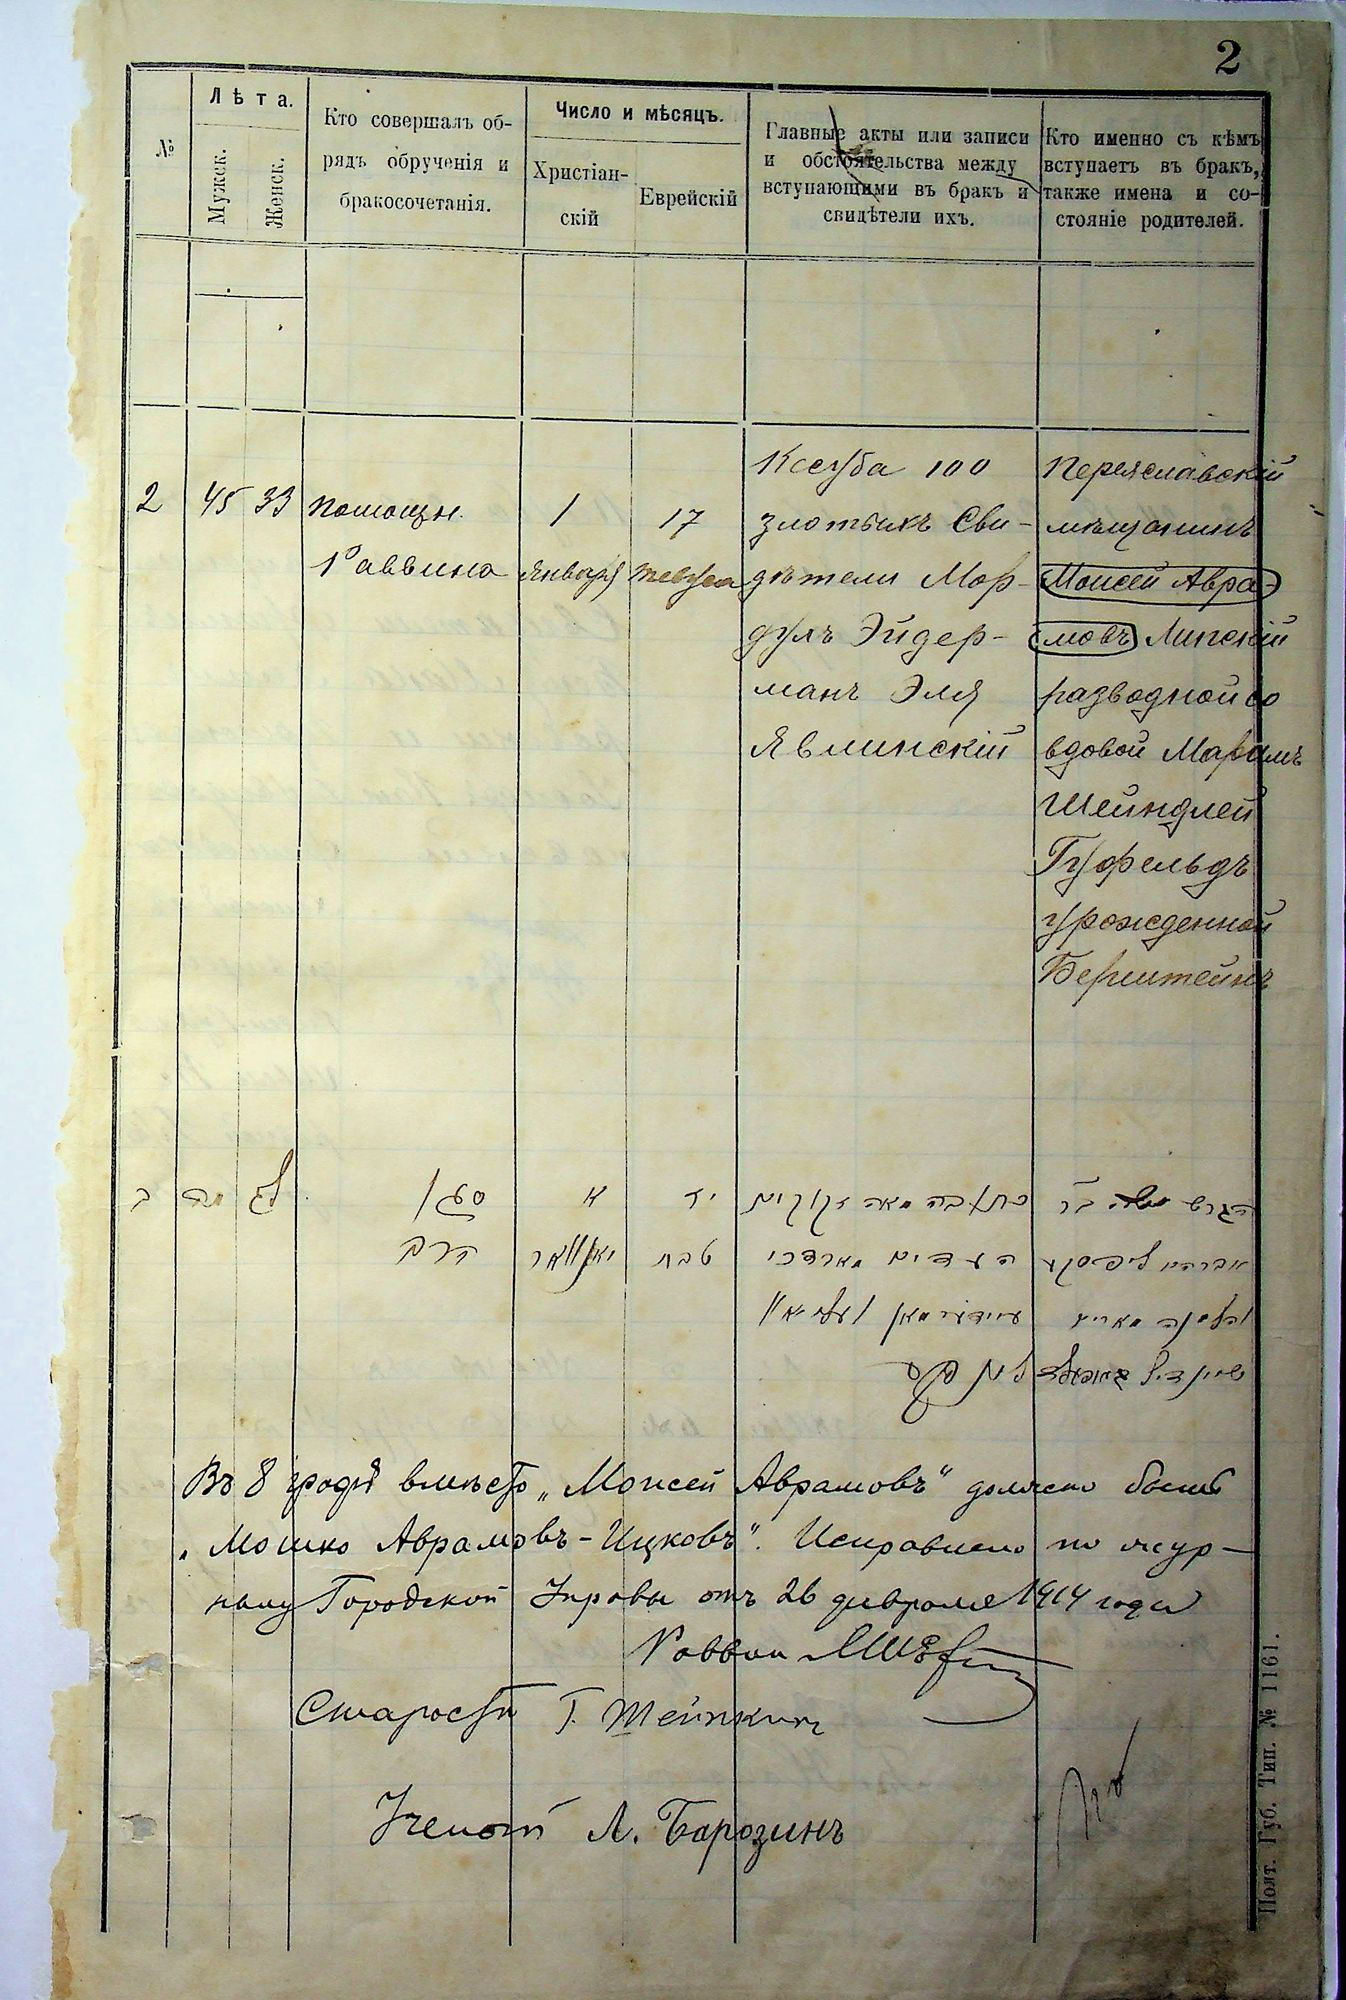 2
№
Лѣта.
Мужск.
Женск.
Кто совершалъ об-
рядъ обрученія и
бракосочетанія.
Число и мѣсяцъ.
Христіан-
скій
Еврейскій
Главные акты или записи
и обстоятельства между
вступающими въ бракъ и
свидѣтели ихъ.
Кто именно съ кѣмъ
вступаетъ въ бракъ,
также имена и со-
стояніе родителей.
2
45
33
Помощн.
Раввина
1
Января
17
Тевуса
Ксуба 100
злотыхъ Сви-
дѣтели Мор-
духъ Эйдер-
манъ Эля
Явлинскій
Переяславскій
мѣщанинъ
Моисей Авра-
мовъ Липскій
разводной со
вдовой Марьямъ
Шейндлей
Гуфельдъ
урожденной
Бернштейнъ
ב
מה
לג
סגן
הרב
א
יאנואר
יז
טבת
כתובה מאה זקוקים
העדים מארדכי
איידערמאן
הגרש משה בר
אברהם ליפסקי
והלמנה מארים
שיינדיל
Въ 8 графѣ вмѣсто „Моисей Аврамовъ" должно быть
„Мошко Аврамовъ-Ицковъ". Исправлено по жур-
налу Городской Управы отъ 26 февраля 1914 года
Раввин
Староста Г. Шейнкинъ
Ученый Л. Барозинъ
Полт. Губ. Тип. № 1161.